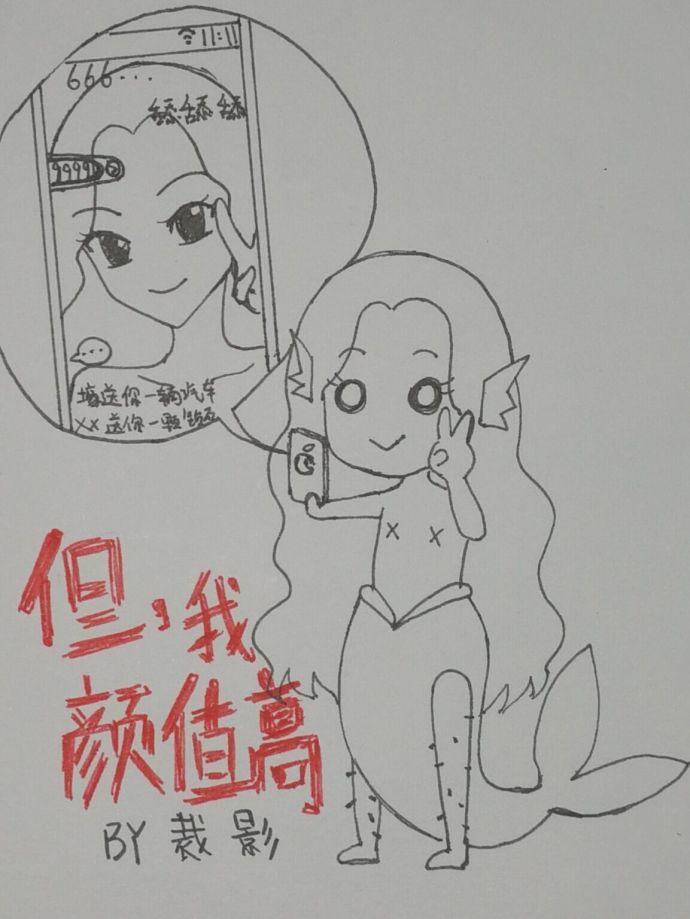 11:11
666...
舔舔舔
9999
...
壕送你一辆汽车
××送你一颗钻石
但,我
颜值高
BY 裁影